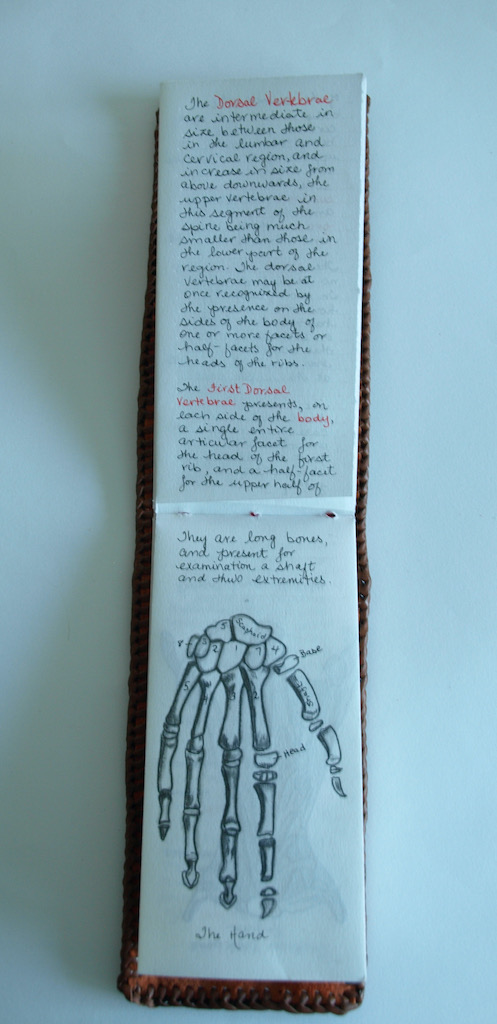 The Dorsal Vertebrae
are intermediate in
size between those
in the lumbar and
cervical region, and
increase in size from
above downwards, the
upper vertebrae in
this segment of the
spine being much
smaller than those in
the lower part of the
region. The dorsal
vertebrae may be at
once recognized by
the presence on the
sides of the body of
one or more facets or
half-facets for the
heads of the ribs.
The First Dorsal
Vertebrae presents, on
each side of the body,
a single entire
articular facet for
the head of the first
rib, and a half-facet
for the upper half of
They are long bones,
and present for
examination a shaft
and two extremities.
5
8 2 1 7 4
Base
5 4 3 2
Shaft
Head
The Hand